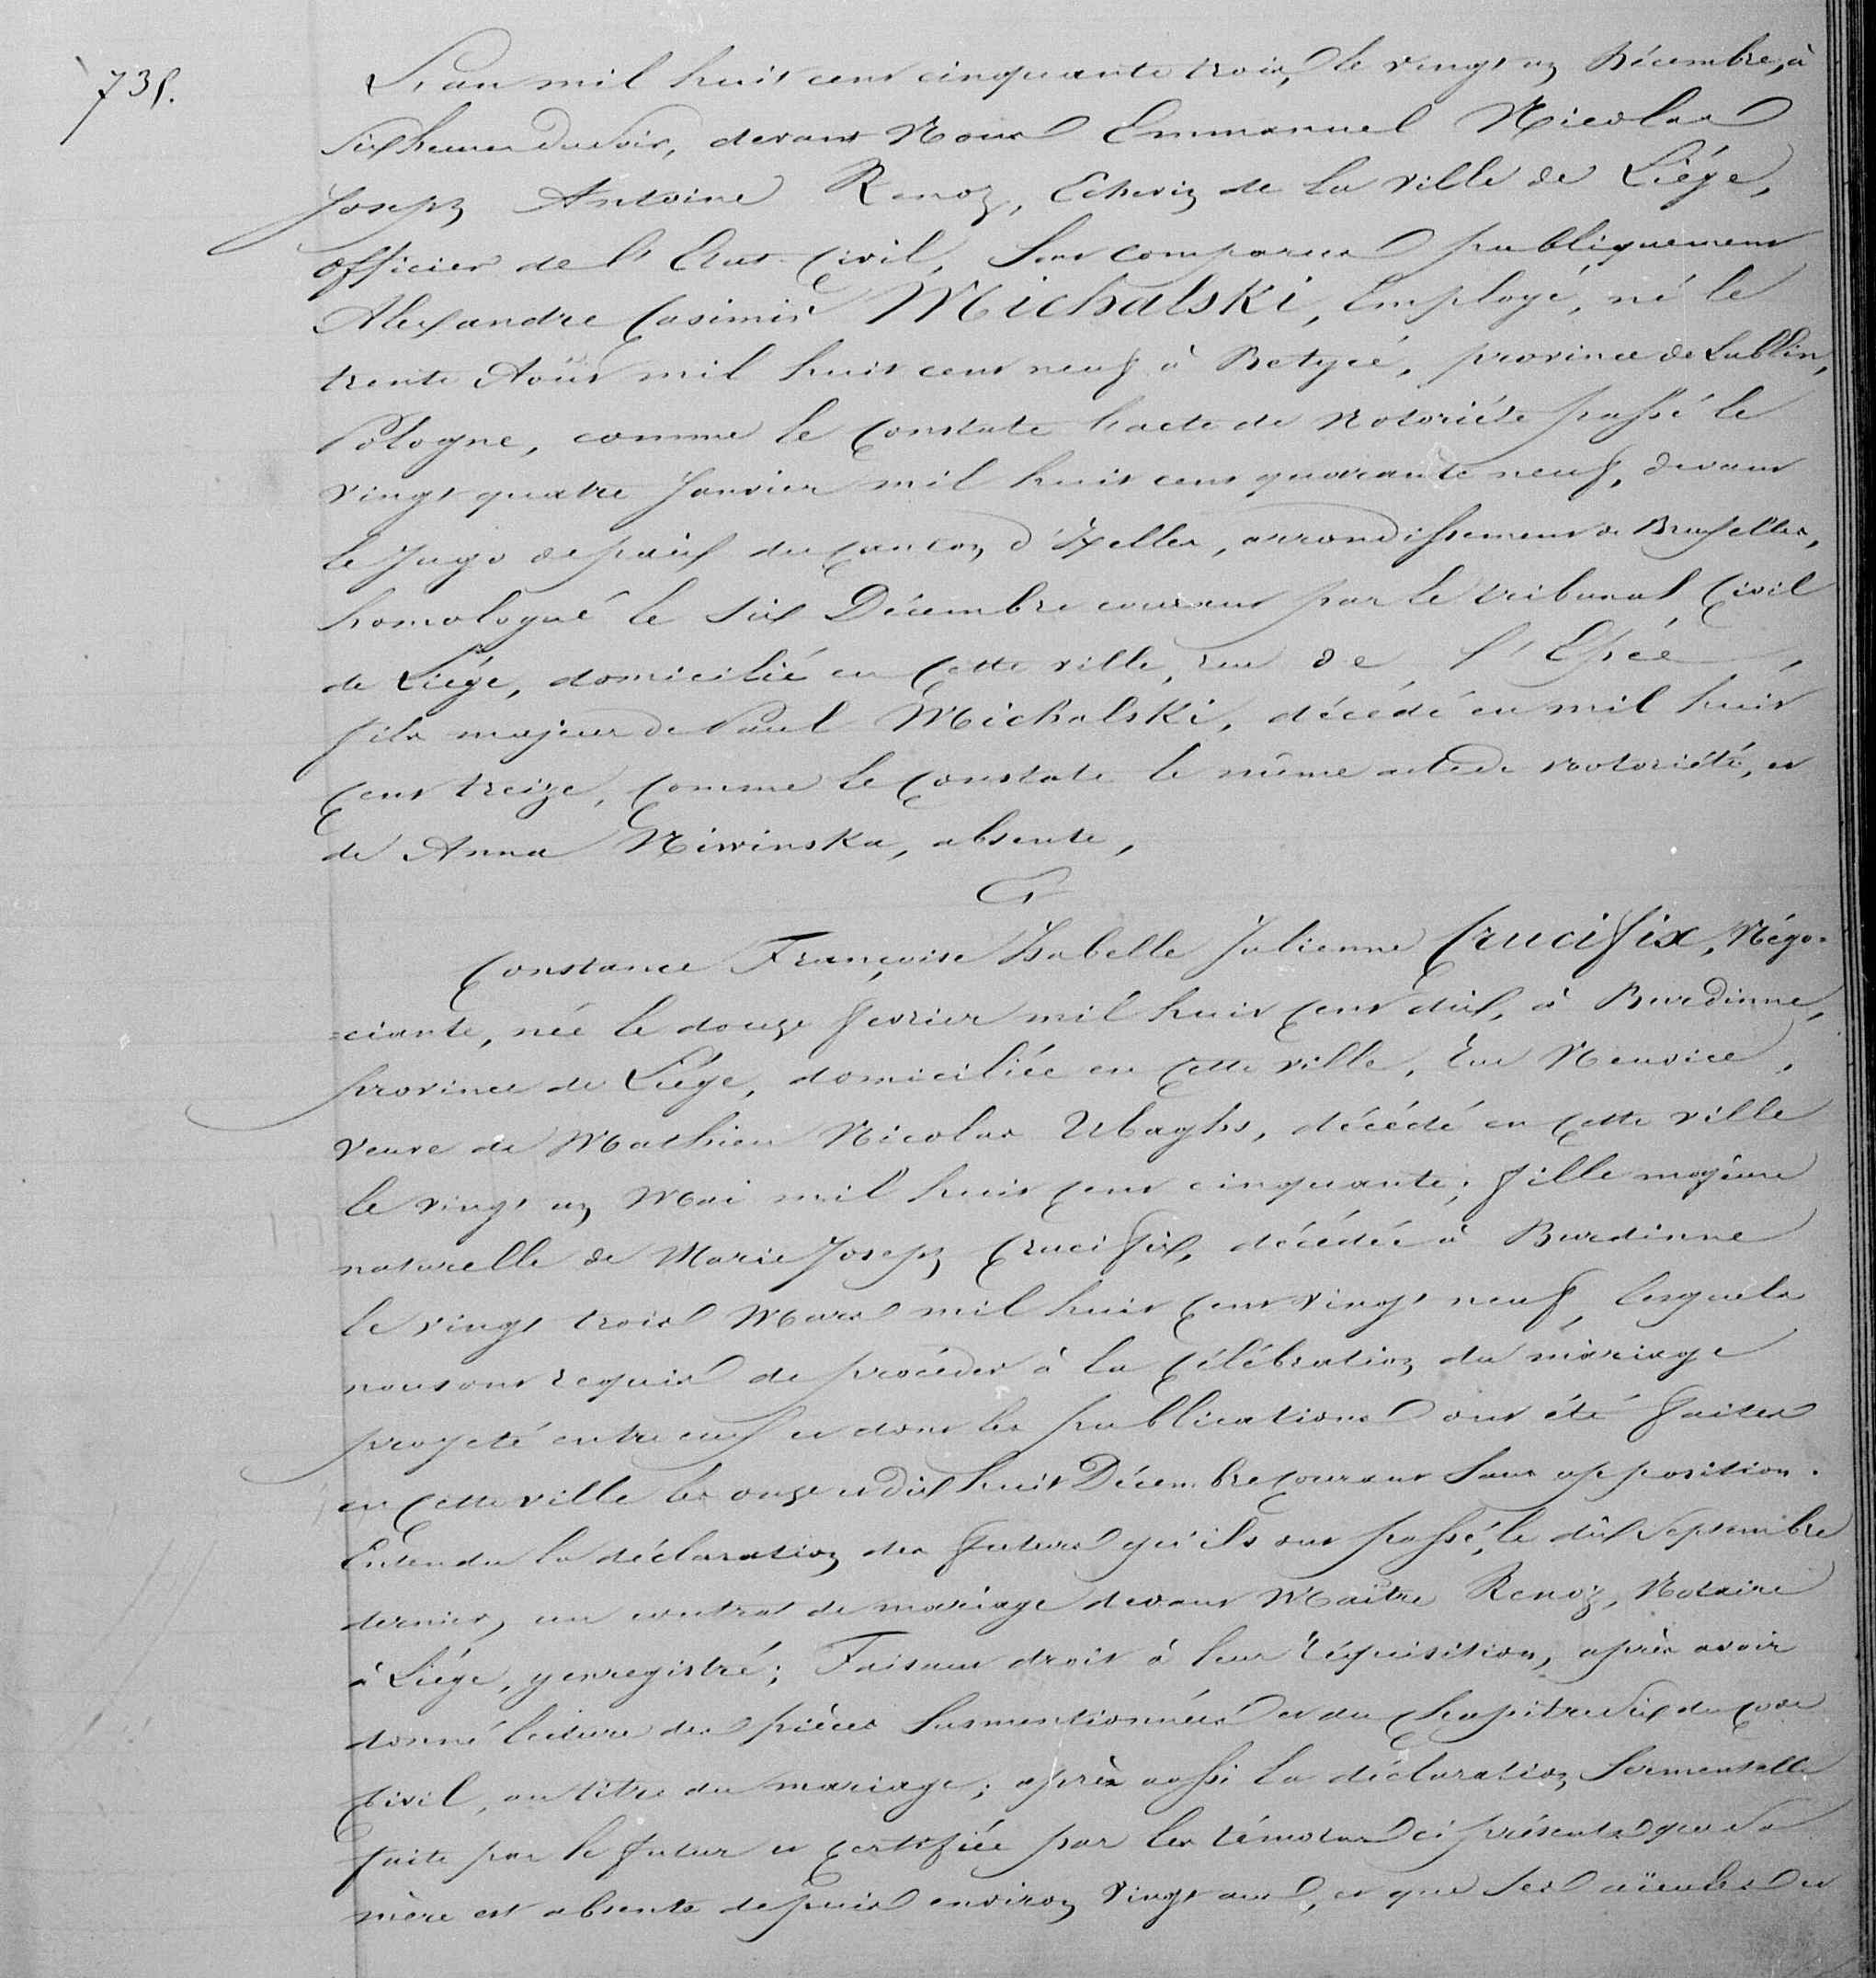 735.
L'an mil huit cent cinquante trois, le vingt un Décembre, à
Six heures du Soir, devant Nous Emmanuel Nicolas
Joseph Antoine Renoz, Echevin de la ville de Liége,
officier de l'Etat Civil, Sont comparus publiquement
Alexandre Casimir Michalski, Employé, né le
trente Août mil huit cent neuf à Betycé, province de Lublin,
Pologne, comme le Constate l'acte de Notoriété passé le
vingt quatre Janvier mil huit cent quarante neuf, devant
le Juge de paix du Canton d'Ixelles, arrondissement de Bruxelles,
homologué le Six Décembre courant par le tribunal Civil
de Liége, domicilié en Cette ville, rue de l'Epée,
fils majeur de Paul Michalski, décédé en mil huit
Cent treize, Comme le Constate le même acte de notoriété, et
de Anna Niwinska, absente,
Et
Constance Françoise Isabelle Julienne Crucifix, Négo-
=ciante, née le douze fevrier mil huit Cent dix, à Burdinne,
province de Liége, domiciliée en Cette ville, rue Neuvice,
veuve de Mathieu Nicolas Ubaghs, décédé en Cette ville
le vingt un Mai mil huit Cent cinquante; fille majeure
naturelle de Marie Joseph Crucifix, décédée à Burdinne
le vingt trois Mars mil huit Cent vingt neuf, lesquels
nous ont requis de procéder à la Célébration du mariage
projeté entre eux et dont les publications ont été faites
en Cette ville les onze et dix huit Décembre Courant Sans opposition.
Entendu la déclaration des futurs qu'ils ont passé, le dix Septembre
dernier, un contrat de mariage devant Maître Renoz, Notaire
à Liége, y enregistré; Faisant droit à leur réquisition, après avoir
donné lecture des pièces Susmentionnées et du Chapitre Six du Code
Civil, au titre du mariage; après aussi la déclaration Sermentelle
faite par le futur et Certifiée par les témoins ci présents que Sa
mère est absente depuis environ vingt ans, et que Ses aïeules et